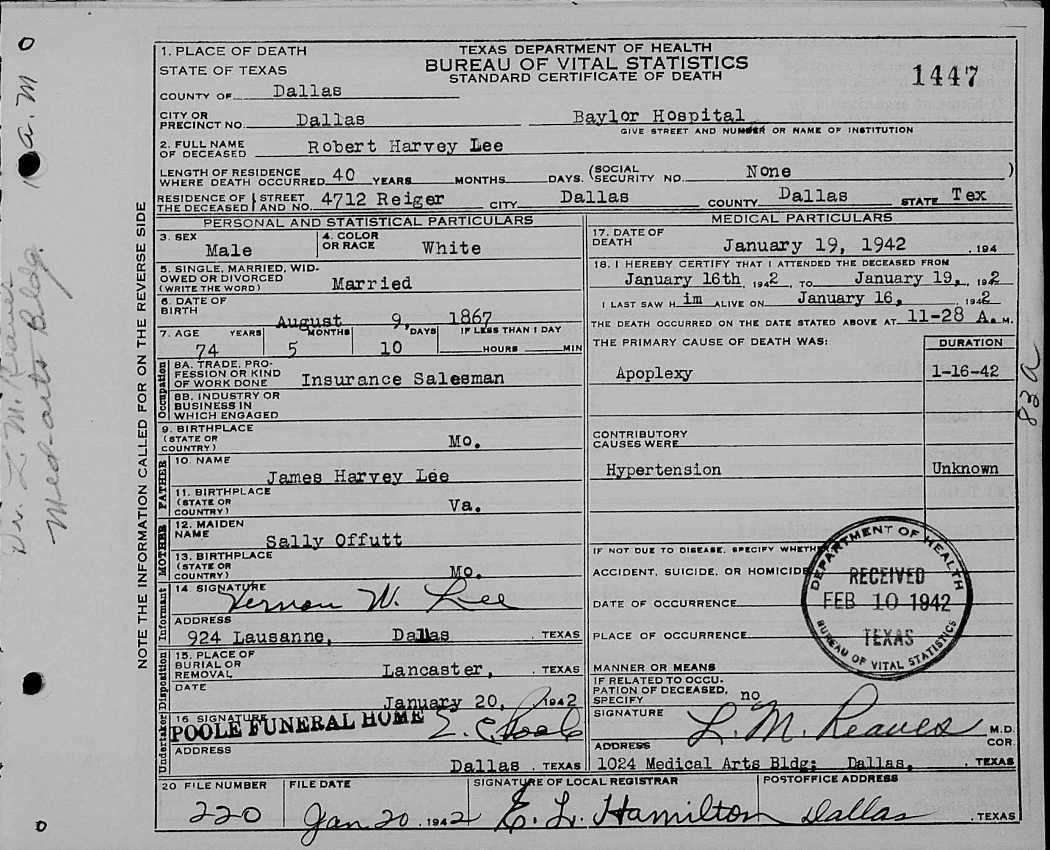 TEXAS DEPARTMENT OF HEALTH
BUREAU OF VITAL STATISTICS
STANDARD CERTIFICATE OF DEATH
1447
1. PLACE OF DEATH
STATE OF TEXAS
COUNTY OF Dallas
CITY OR PRECINCT NO. Dallas Baylor Hospital
GIVE STREET AND NUMBER OR NAME OF INSTITUTION
2. FULL NAME OF DECEASED Robert Harvey Lee
LENGTH OF RESIDENCE WHERE DEATH OCCURRED 40 YEARS MONTHS DAYS. (SOCIAL SECURITY NO. None )
RESIDENCE OF THE DECEASED STREET AND NO. 4712 Reiger CITY Dallas COUNTY Dallas STATE Tex
PERSONAL AND STATISTICAL PARTICULARS
3. SEX Male
4. COLOR OR RACE White
5. SINGLE, MARRIED, WIDOWED OR DIVORCED (WRITE THE WORD) Married
6. DATE OF BIRTH August 9, 1867
7. AGE YEARS MONTHS DAYS IF LESS THAN 1 DAY
74 5 10 HOURS MIN
Occupation
8A. TRADE, PROFESSION OR KIND OF WORK DONE Insurance Salesman
8B. INDUSTRY OR BUSINESS IN WHICH ENGAGED
9. BIRTHPLACE (STATE OR COUNTRY) Mo.
FATHER
10. NAME James Harvey Lee
11. BIRTHPLACE (STATE OR COUNTRY) Va.
MOTHER
12. MAIDEN NAME Sally Offutt
13. BIRTHPLACE (STATE OR COUNTRY) Mo.
Informant
14. SIGNATURE Vernon W. Lee
ADDRESS
924 Lausanne, Dallas . TEXAS
Disposition
15. PLACE OF BURIAL OR REMOVAL Lancaster, . TEXAS
DATE January 20, 1942
Undertaker
16 SIGNATURE POOLE FUNERAL HOME E. C. Poole
ADDRESS
Dallas . TEXAS
MEDICAL PARTICULARS
17. DATE OF DEATH January 19, 1942 , 194
18. I HEREBY CERTIFY THAT I ATTENDED THE DECEASED FROM
January 16th, 1942, TO January 19,, 1942
I LAST SAW H im ALIVE ON January 16, 1942
THE DEATH OCCURRED ON THE DATE STATED ABOVE AT 11-28 A. M.
THE PRIMARY CAUSE OF DEATH WAS: DURATION
Apoplexy 1-16-42
CONTRIBUTORY CAUSES WERE
Hypertension Unknown
IF NOT DUE TO DISEASE, SPECIFY WHETH
ACCIDENT, SUICIDE, OR HOMICID
DATE OF OCCURRENCE
PLACE OF OCCURRENCE
MANNER OR MEANS
IF RELATED TO OCCUPATION OF DECEASED, SPECIFY no
SIGNATURE L. M. Reaves M.D. COR.
ADDRESS
1024 Medical Arts Bldg; Dallas, . TEXAS
DEPARTMENT OF HEALTH
RECEIVED
FEB 10 1942
TEXAS
BUREAU OF VITAL STATISTICS
20 FILE NUMBER 220
FILE DATE Jan 20, 1942
SIGNATURE OF LOCAL REGISTRAR E. L. Hamilton
POSTOFFICE ADDRESS Dallas . TEXAS
NOTE THE INFORMATION CALLED FOR ON THE REVERSE SIDE
Dr. L. M.
Med-arts Bldg.
a.m
83a